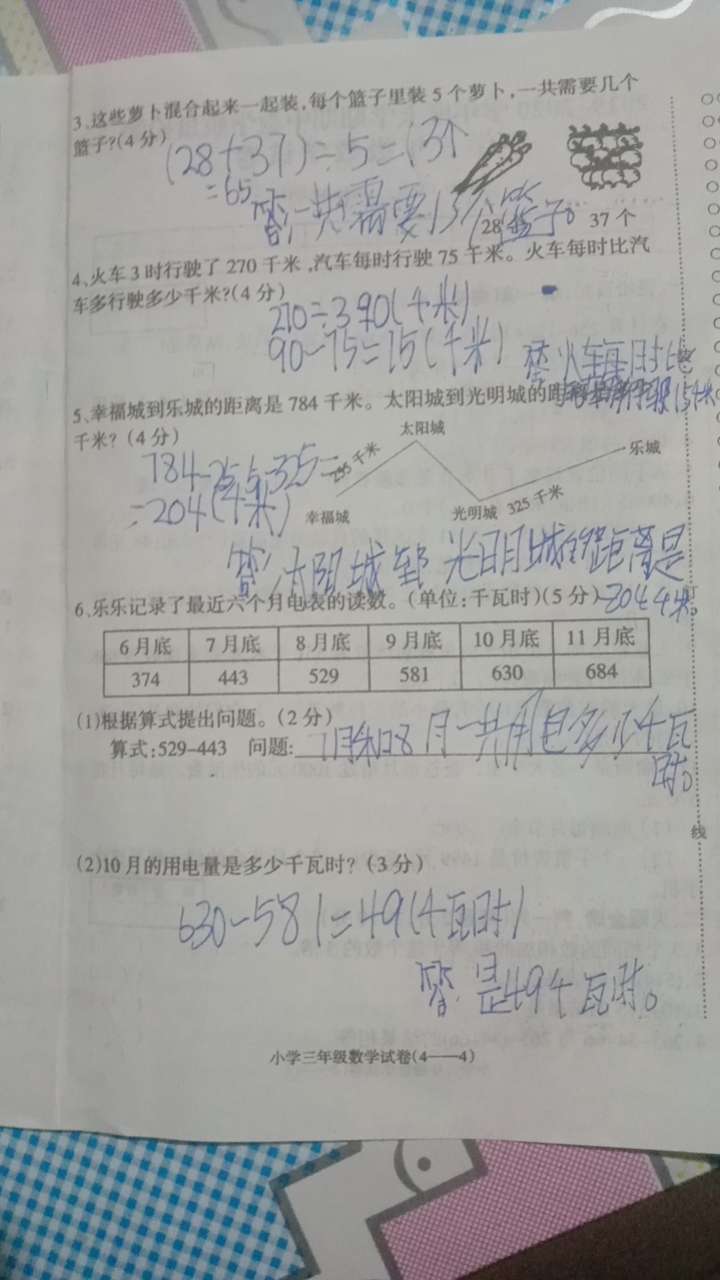 3、这些萝卜混合起来一起装,每个篮子里装 5 个萝卜,一共需要几个
篮子?(4 分)
(28+37)÷5=13个
=65
答:一共需要13个篮子。
28
37 个
4、火车 3 时行驶了 270 千米,汽车每时行驶 75 千米。火车每时比汽
车多行驶多少千米?(4 分)
270÷3 90(千米)
90-75=15(千米)
答:火车每时比
15千米
5、幸福城到乐城的距离是 784 千米。太阳城到光明城的距
千米?(4 分)
太阳城
乐城
784-255-325=
255 千米
=204(千米)
幸福城
光明城 325 千米
答:太阳城到光明城的距离是
204千米。
6、乐乐记录了最近六个月电表的读数。(单位:千瓦时)(5 分)
6 月底 7 月底 8 月底 9 月底 10 月底 11 月底
374 443 529 581 630 684
(1)根据算式提出问题。(2 分)
算式:529-443 问题:7月和8月一共用电多少千瓦
时。
线
(2)10 月的用电量是多少千瓦时?(3 分)
630-581=49(千瓦时)
答:是49千瓦时。
小学三年级数学试卷(4——4)